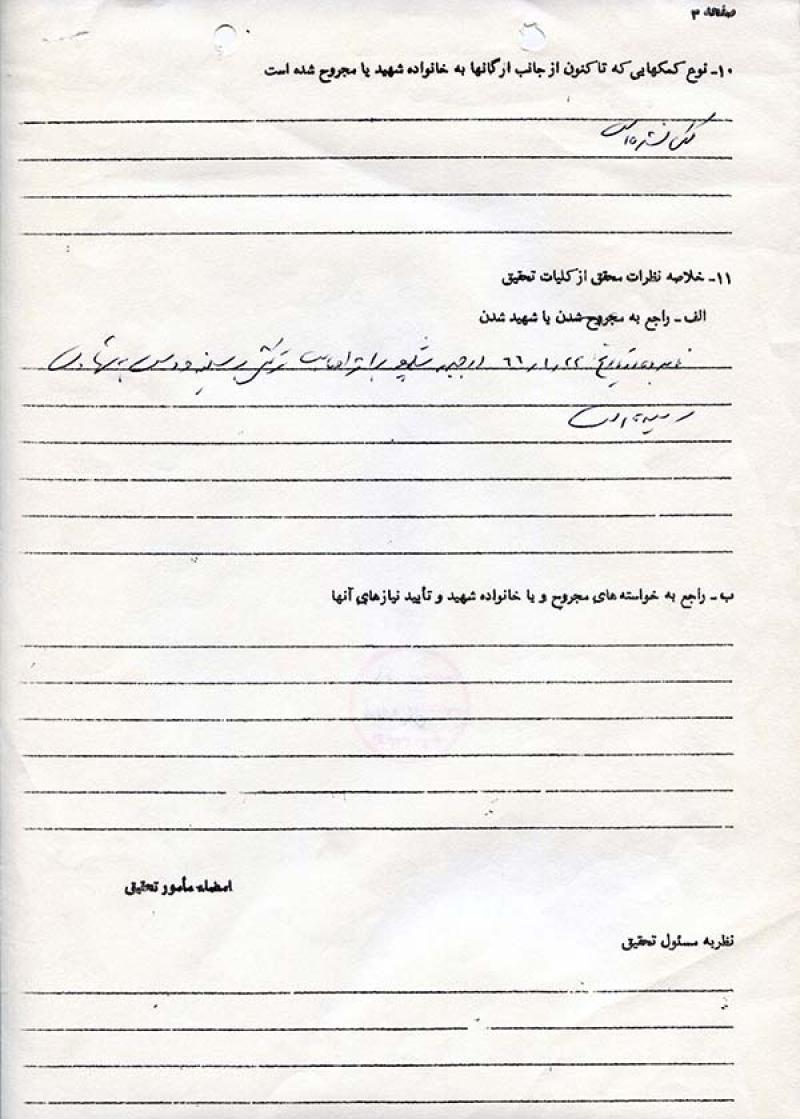 صفحه ۳
۱۰ـ نوع کمکهایی که تا کنون از جانب ارگانها به خانواده شهید یا مجروح شده است
کمکی نشده است
۱۱ـ خلاصه نظرات محقق از کلیات تحقیق
الف ـ راجع به مجروح شدن یا شهید شدن
نامبرده در تاریخ ۶۶/۱/۲۲ در جبهه شلمچه بر اثر اصابت ترکش به سینه و دست به شهادت
رسیده است
ب ـ راجع به خواسته های مجروح و یا خانواده شهید و تأیید نیازهای آنها
امضاء مأمور تحقیق
نظریه مسئول تحقیق